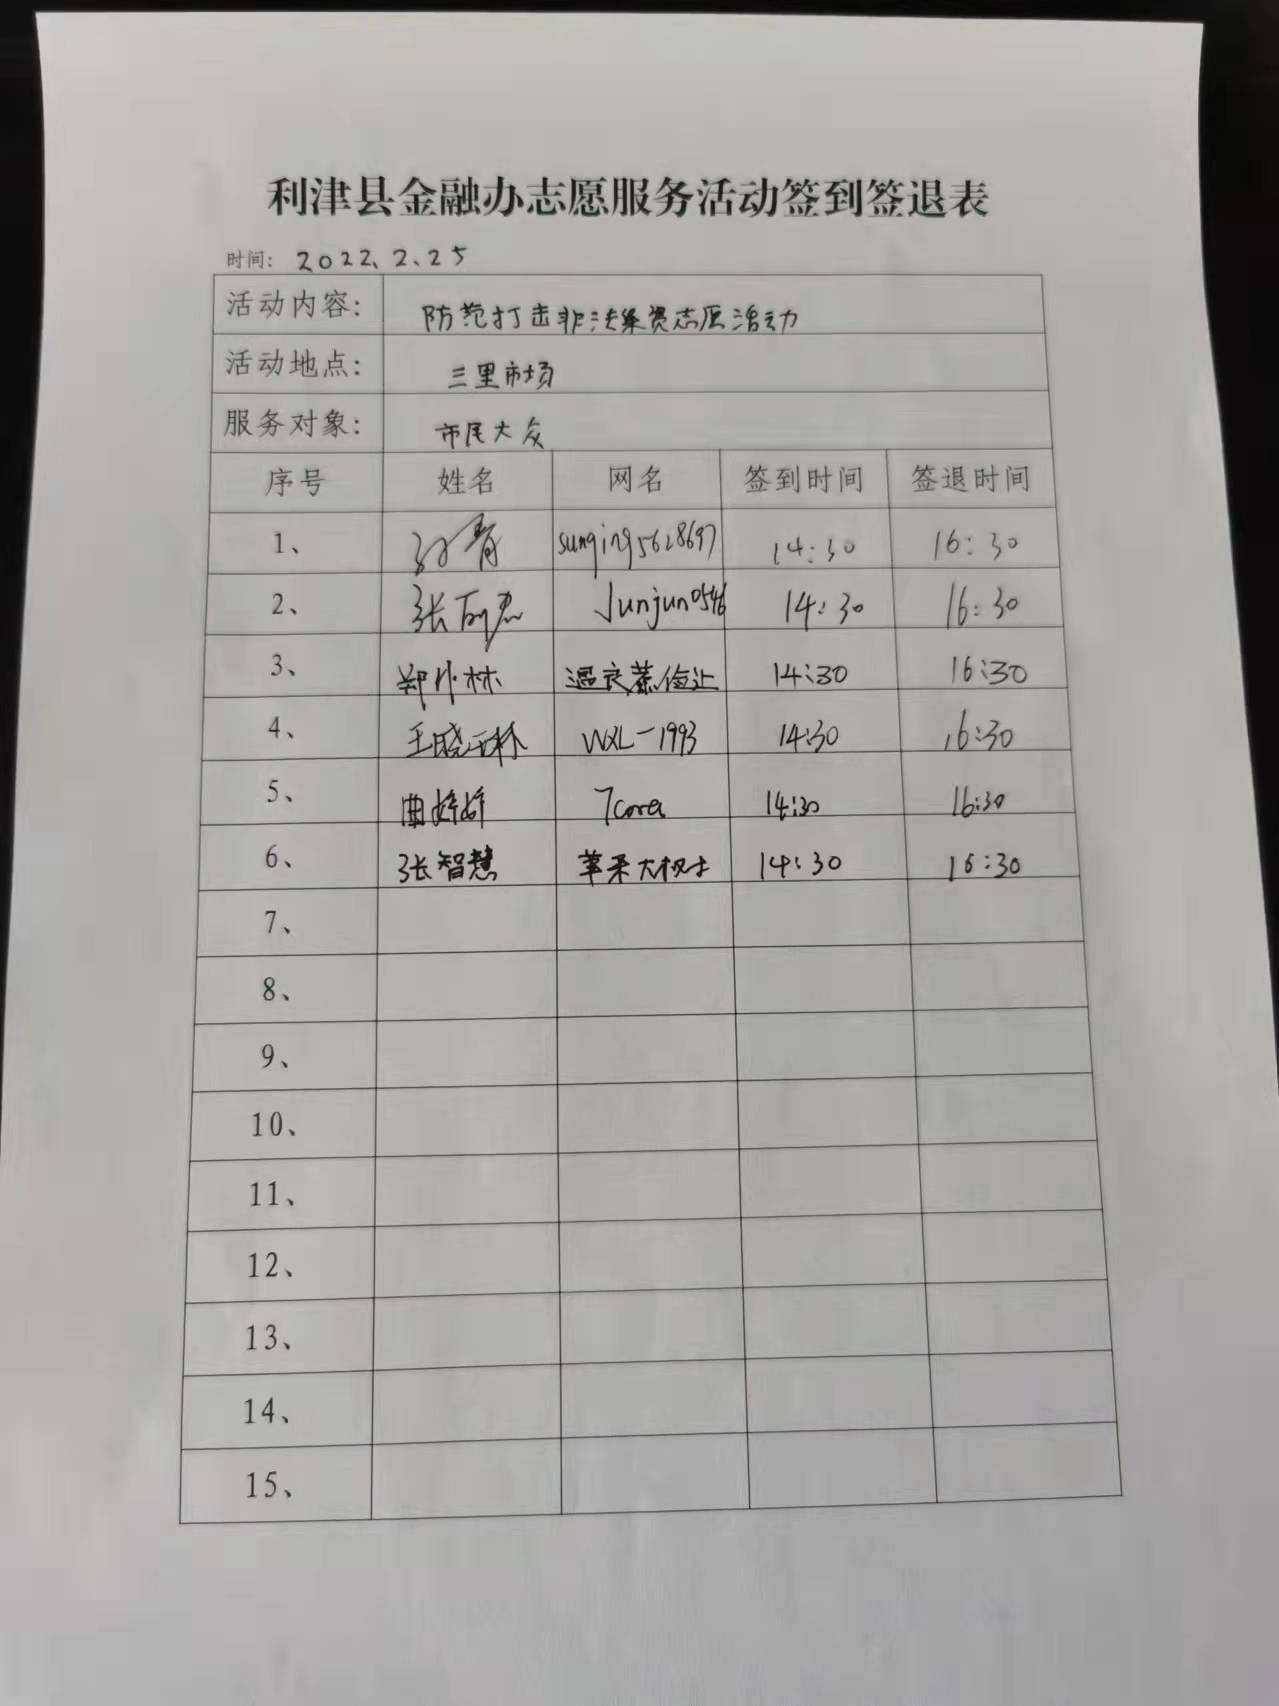 利津县金融办志愿服务活动签到签退表
时间: 2022、2、25
活动内容: 防范打击非法集资志愿活动
活动地点: 三里市场
服务对象: 市民大众
序号 姓名 网名 签到时间 签退时间
1、 孙青 sunqing5628697 14:30 16:30
2、 张 Junjun0546 14:30 16:30
3、 郑 林 温良恭俭让 14:30 16:30
4、 王晓 WXL-1993 14:30 16:30
5、 曲婷婷 7cora 14:30 16:30
6、 张智慧 苹果大 14:30 16:30
7、
8、
9、
10、
11、
12、
13、
14、
15、